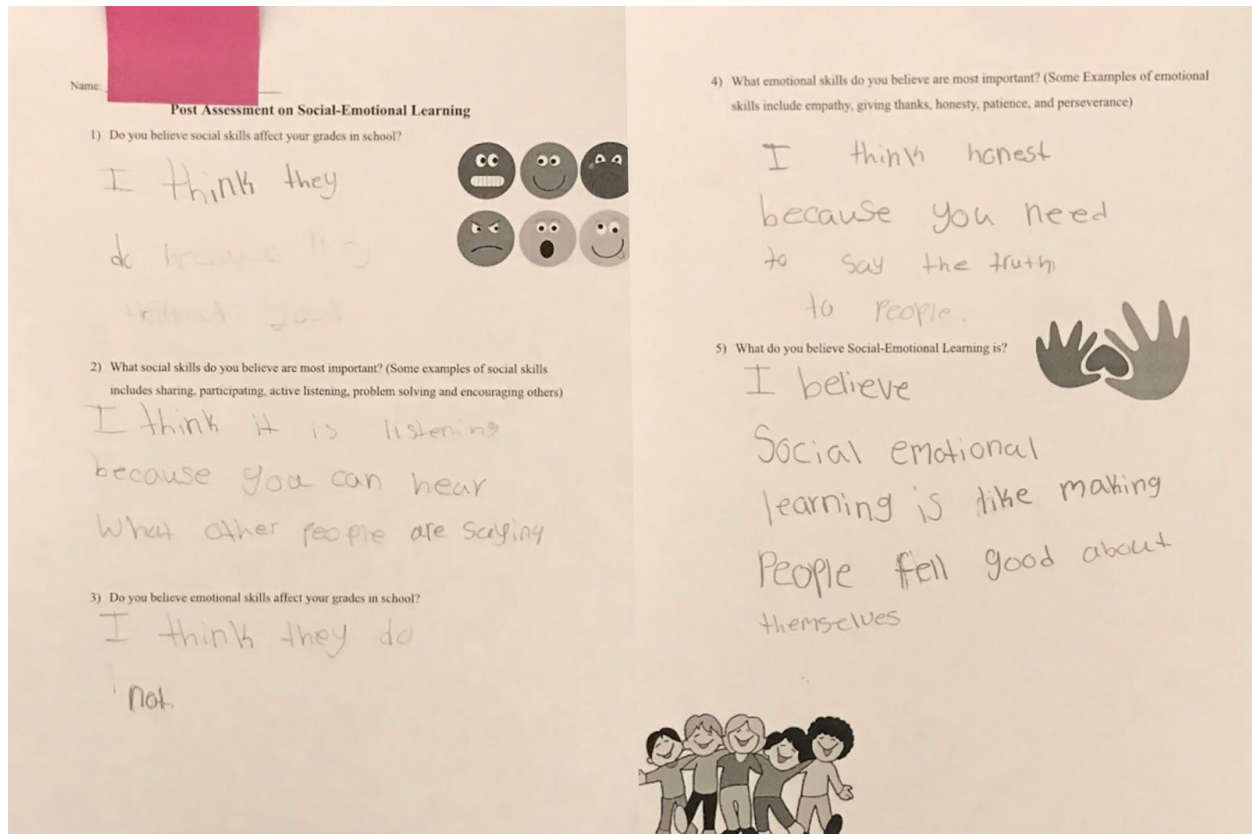 Name:
Post Assessment on Social-Emotional Learning
1) Do you believe social skills affect your grades in school?
I think they
do
2) What social skills do you believe are most important? (Some examples of social skills
includes sharing, participating, active listening, problem solving and encouraging others)
I think it is listening
because you can hear
What other people are saying
3) Do you believe emotional skills affect your grades in school?
I think they do
not.
4) What emotional skills do you believe are most important? (Some Examples of emotional
skills include empathy, giving thanks, honesty, patience, and perseverance)
I think honest
because you need
to say the truth
to People.
5) What do you believe Social-Emotional Learning is?
I believe
Social emotional
learning is like making
People fell good about
themselves